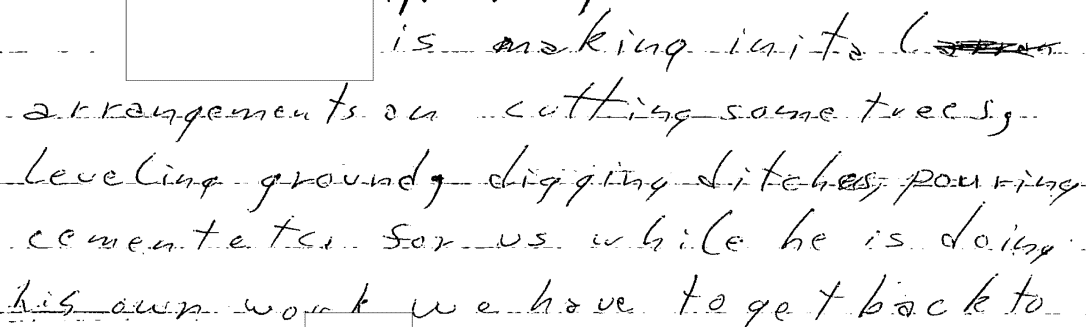 is making inital
arrangements on cutting some trees,
leveling ground, digging ditches, pouring
cement etc. for us while he is doing
his own work we have to get back to